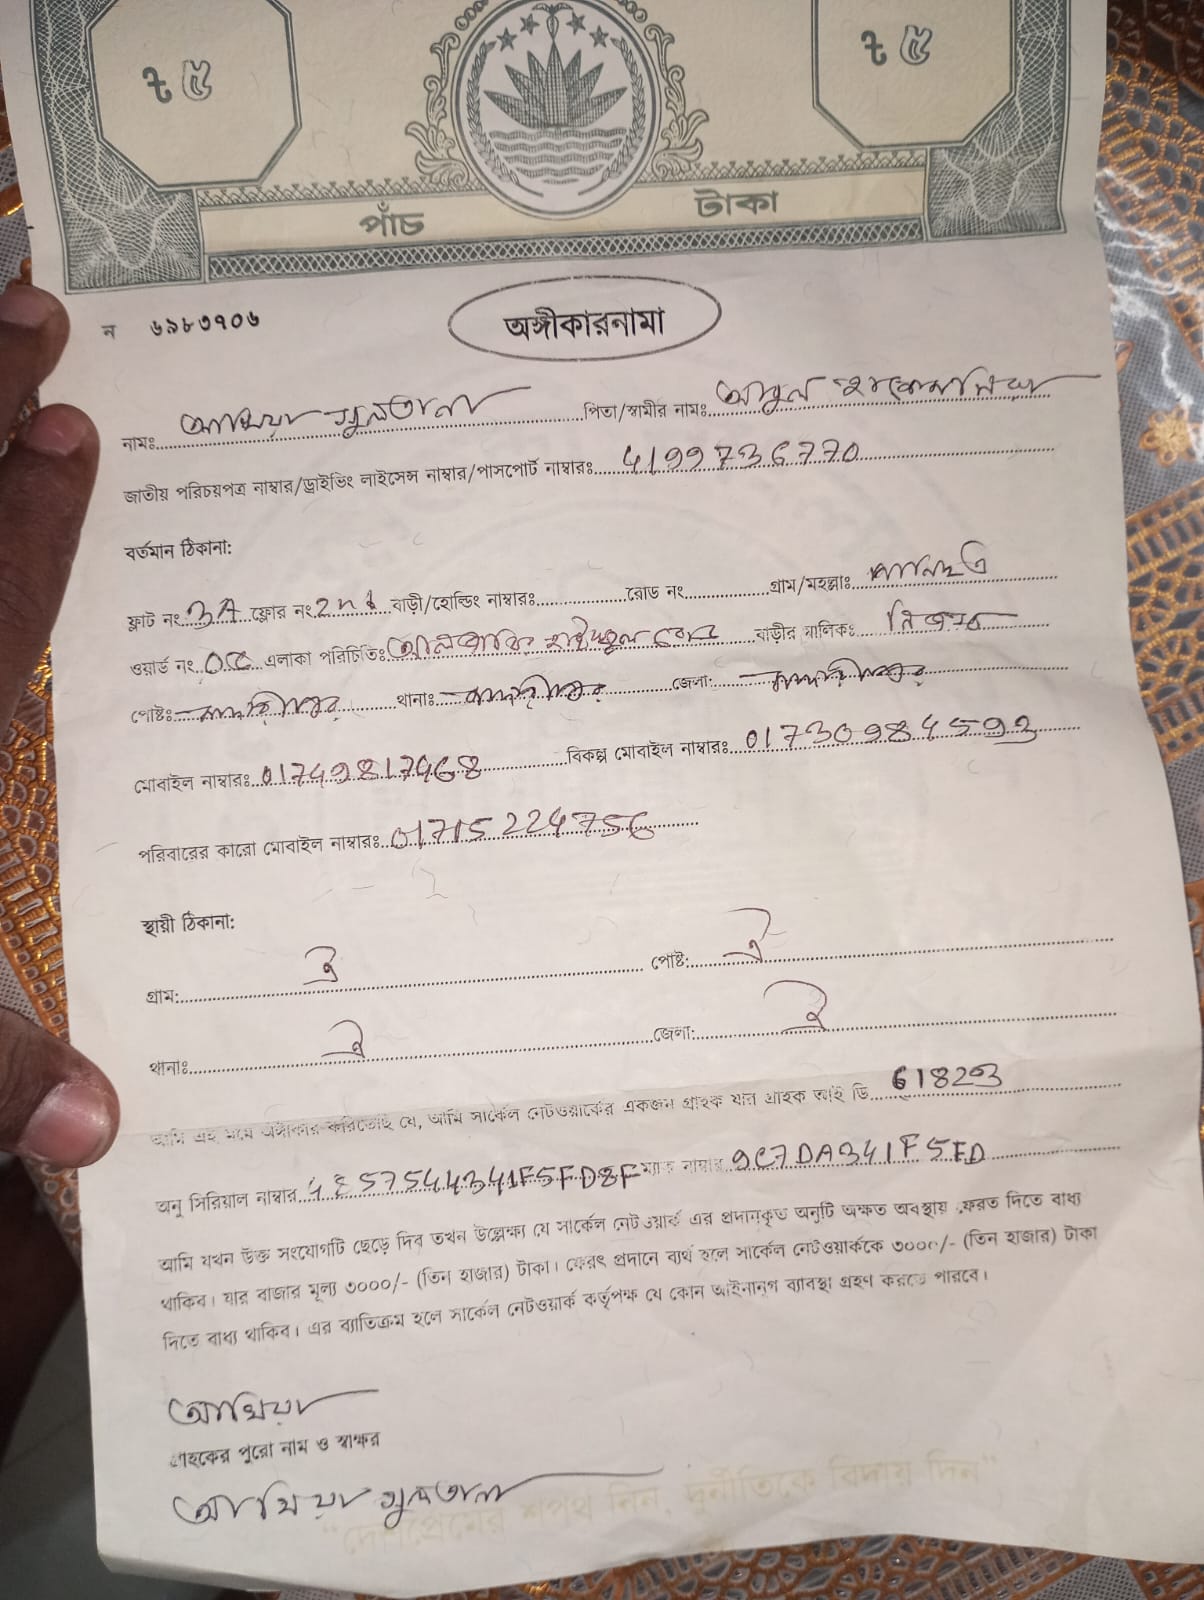 ৳ ৫ ৳ ৫
পাঁচ টাকা
ন ৬৯৮৩৭০৬
অঙ্গীকারনামা
নামঃ আখিয়া সুলতানা পিতা/স্বামীর নামঃ আবুল
জাতীয় পরিচয়পত্র নাম্বার/ড্রাইভিং লাইসেন্স নাম্বার/পাসপোর্ট নাম্বারঃ 4199736770
বর্তমান ঠিকানা:
ফ্লাট নং 3A ফ্লোর নং 2nd বাড়ী/হোল্ডিং নাম্বারঃ রোড নং গ্রাম/মহল্লাঃ
ওয়ার্ড নং ০৫ এলাকা পরিচিতিঃ বাড়ীর মালিকঃ নিজস্ব
পোষ্টঃ থানাঃ জেলা:
মোবাইল নাম্বারঃ 01749817468 বিকল্প মোবাইল নাম্বারঃ 01730984593
পরিবারের কারো মোবাইল নাম্বারঃ 01715224756
স্থায়ী ঠিকানা:
গ্রাম: ঐ পোষ্ট: ঐ
থানাঃ ঐ জেলা: ঐ
আমি এই মর্মে অঙ্গীকার করিতেছি যে, আমি সার্কেল নেটওয়ার্কের একজন গ্রাহক যার গ্রাহক আই ডি 61823
অনু সিরিয়াল নাম্বার 4E57544341F5FD8F ম্যাক নাম্বার 9C7DA341F5FD
আমি যখন উক্ত সংযোগটি ছেড়ে দিব তখন উল্লেক্ষ্য যে সার্কেল নেট ওয়ার্ক এর প্রদানকৃত অনুটি অক্ষত অবস্থায় ফেরত দিতে বাধ্য
থাকিব। যার বাজার মূল্য ৩০০০/- (তিন হাজার) টাকা। ফেরৎ প্রদানে ব্যর্থ হলে সার্কেল নেটওয়ার্ককে ৩০০০/- (তিন হাজার) টাকা
দিতে বাধ্য থাকিব। এর ব্যাতিক্রম হলে সার্কেল নেটওয়ার্ক কর্তৃপক্ষ যে কোন আইনানুগ ব্যাবস্থা গ্রহণ করতে পারবে।
আখিয়া
গ্রাহকের পুরো নাম ও স্বাক্ষর
আখিয়া সুলতানা
"দেশপ্রেমের শপথ নিন, দুর্নীতিকে বিদায় দিন"